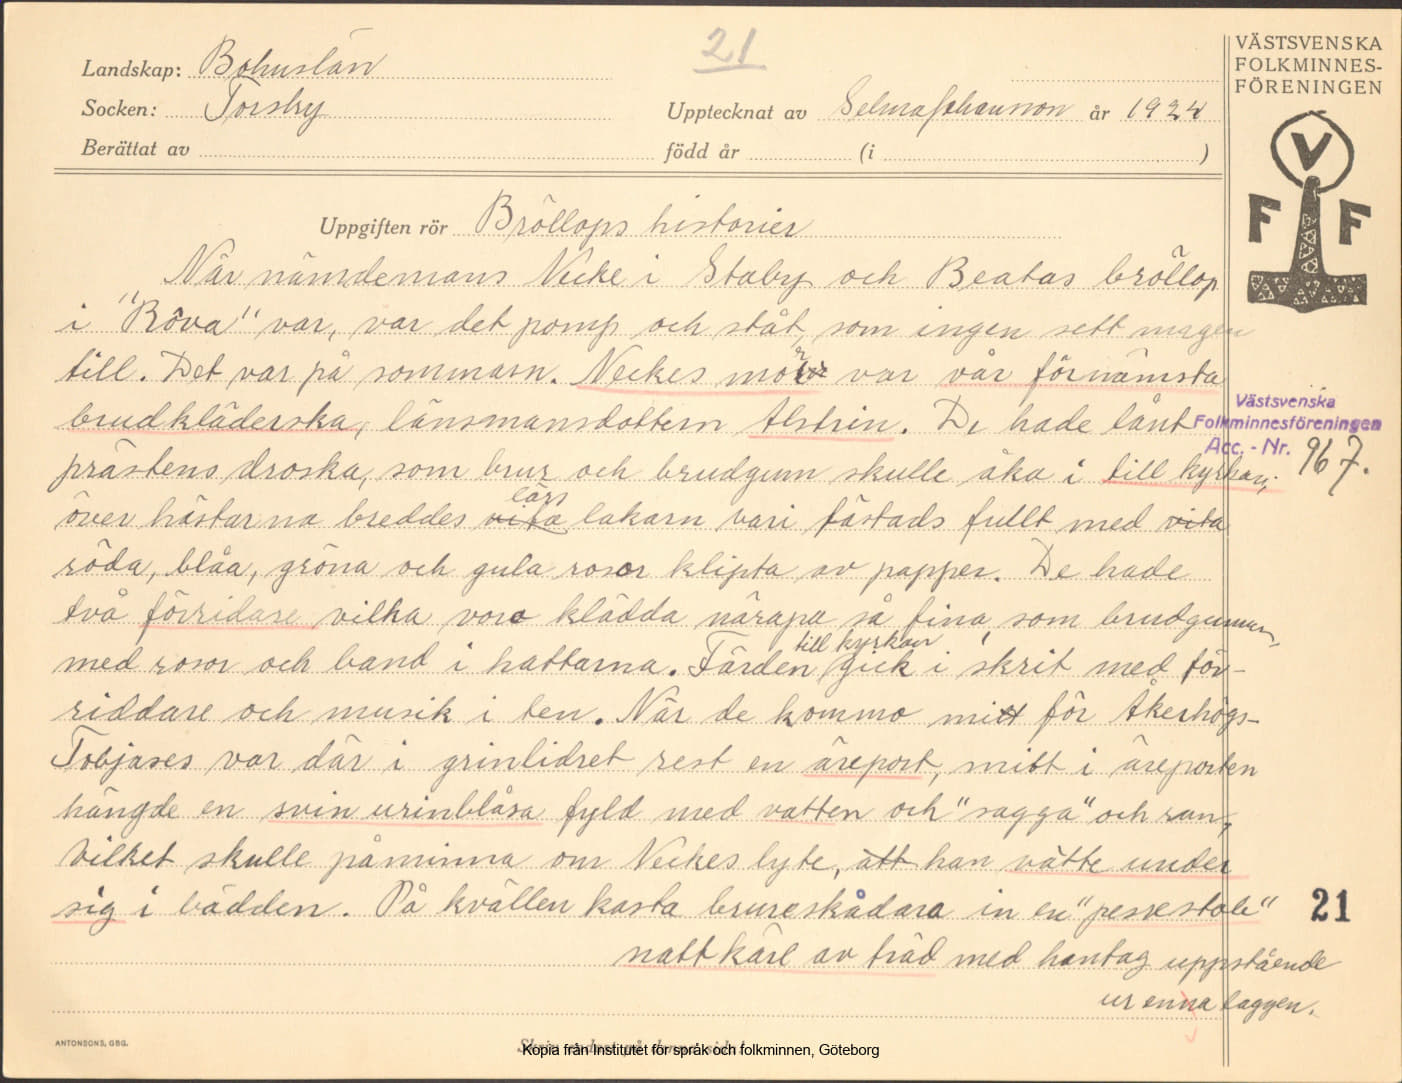 21
Landskap: Bohuslän
Socken: Torsby
Upptecknat av Selma Johansson år 1924
Berättat av född år (i )
VÄSTSVENSKA
FOLKMINNES-
FÖRENINGEN
V
F F
Uppgiften rör Bröllops historier
När nämdemans Necke i Staby och Beatas bröllop
i "Röva" var, var det pomp och ståt, som ingen sett magen
till. Det var på sommarn. Neckes mor var vår förnämsta
brudkläderska, länsmansdottern Alstrin. De hade lånt
prästens droska, som brur och brudgum skulle åka i till kyrkan;
över hästarna breddes vita lärs lakarn vari fästads fullt med vita
röda, blåa, gröna och gula rosor klipta av papper. De hade
två förridare vilka voro klädda närapå så fina som brudgumen,
med rosor och band i hattarna. Färden till kyrkan gick i skrit med för-
riddare och musik i ten. När de kommo mitt för Åkerhögs-
Tobjases var där i grinlidret rest en äreport, mitt i äreporten
hängde en svin urinblåsa fyld med vatten och "sagga" och ran,
vilket skulle påminna om Neckes lyte, att han vätte under
sig i bädden. På kvällen kasta brureskådara in en "pessestole"
nattkärl av träd med hantag uppstående
ur enna laggen.
Västsvenska
Folkminnesföreningen
Acc. - Nr. 967.
21
ANTONSONS, GBG.
Kopia från Institutet för språk och folkminnen, Göteborg